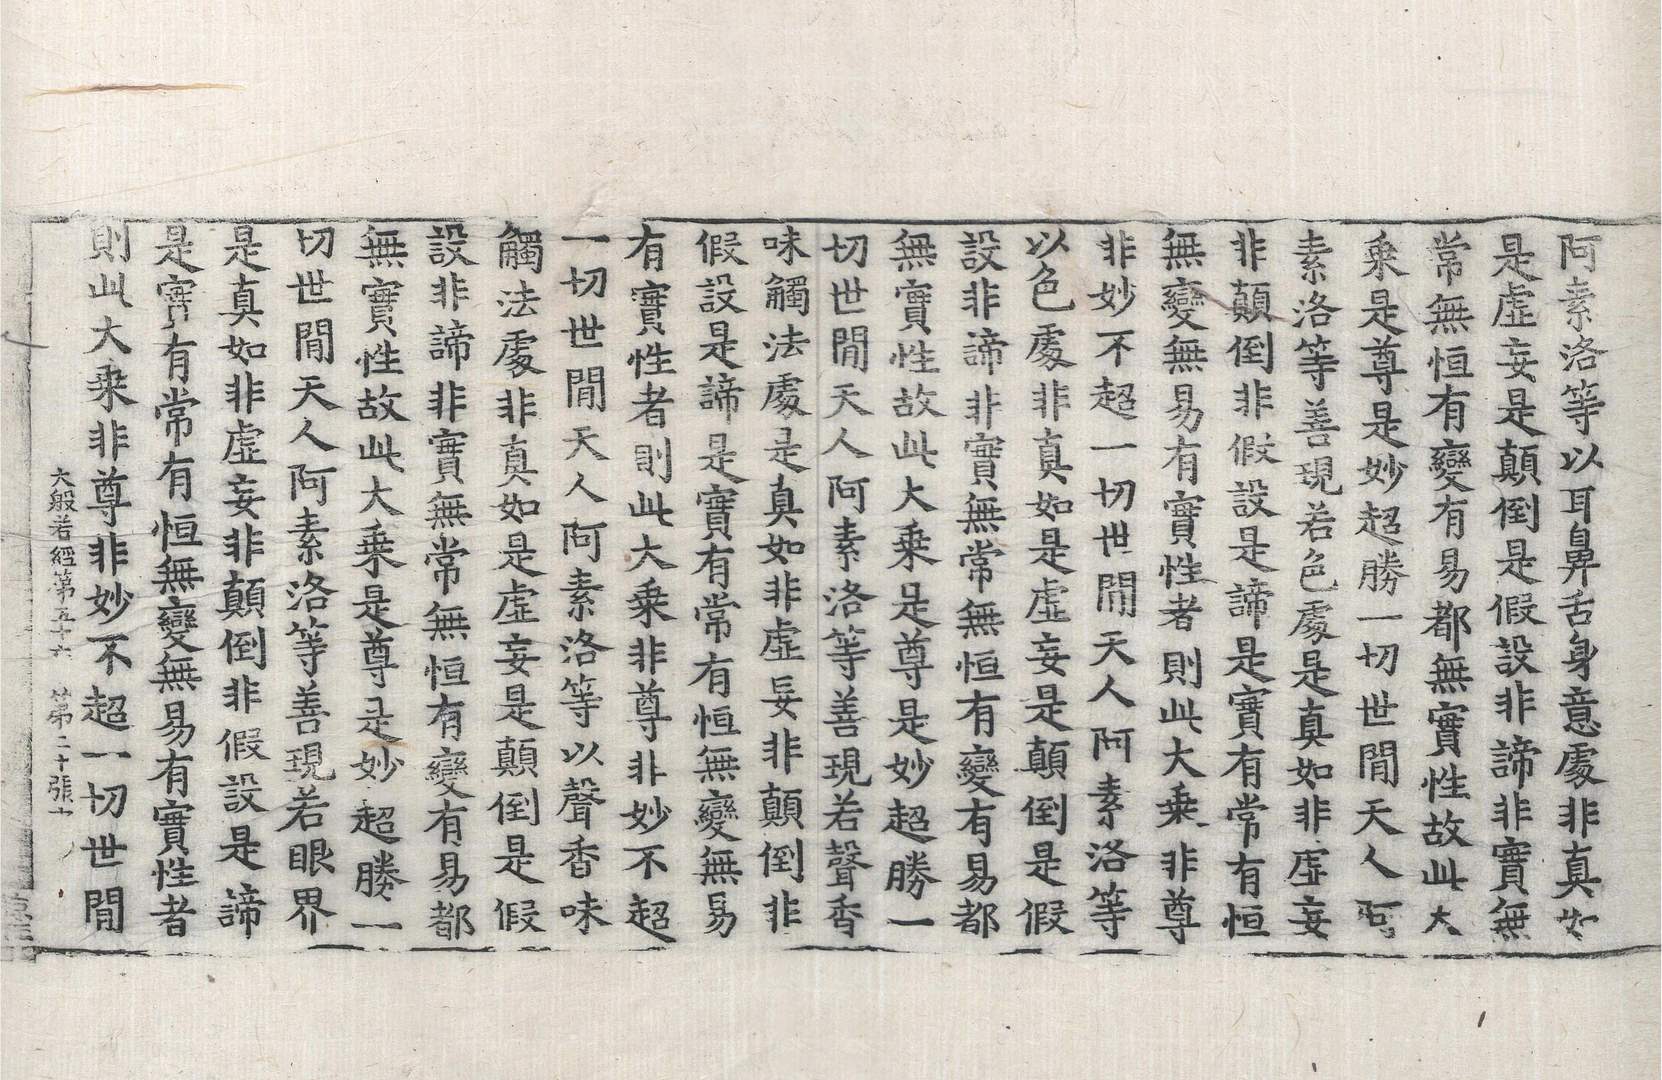 阿素洛等以耳鼻舌身意處非真如
是虛妄是顛倒是假設非諦非實無
常無恒有變有易都無實性故此大
乘是尊是妙超勝一切世間天人阿
素洛等善現若色處是真如非虛妄
非顛倒非假設是諦是實有常有恒
無變無易有實性者則此大乘非尊
非妙不超一切世間天人阿素洛等
以色處非真如是虛妄是顛倒是假
設非諦非實無常無恒有變有易都
無實性故此大乘是尊是妙超勝一
切世間天人阿素洛等善現若聲香
味觸法處是真如非虛妄非顛倒非
假設是諦是實有常有恒無變無易
有實性者則此大乘非尊非妙不超
一切世間天人阿素洛等以聲香味
觸法處非真如是虛妄是顛倒是假
設非諦非實無常無恒有變有易都
無實性故此大乘是尊是妙超勝一
切世間天人阿素洛等善現若眼界
是真如非虛妄非顛倒非假設是諦
是實有常有恒無變無易有實性者
則此大乘非尊非妙不超一切世間
大般若經第五十六 第二十張